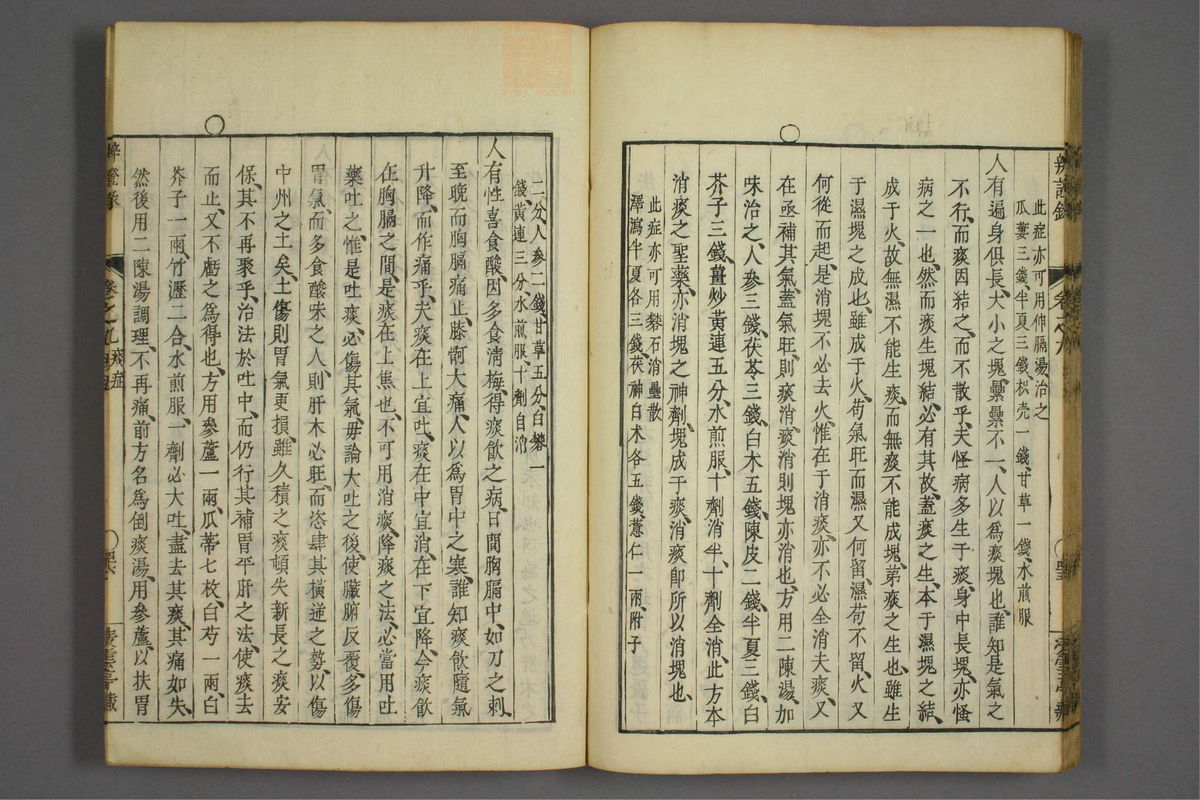 此症亦可用伸膈湯治之
瓜蔞三錢、半夏三錢、枳壳一錢、甘草一錢、水煎服
人有遍身俱長、大小之塊、纍纍不一、人以爲痰塊也、誰知是氣之
不行、而痰因結之、而不散乎、夫怪病多生于痰、身中長塊、亦怪
病之一也、然而痰生塊結、必有其故、蓋痰之生、本于濕、塊之結、
成于火、故無濕不能生痰、而無痰不能成塊、第痰之生也、雖生
于濕、塊之成也、雖成于火、苟氣旺而濕又何留、濕苟不留、火又
何從而起、是消塊不必去火、惟在于消痰、亦不必全消夫痰、又
在亟補其氣、蓋氣旺則痰消、痰消則塊亦消也、方用二陳湯、加
味治之、人參三錢、茯苓三錢、白朮五錢、陳皮二錢、半夏三錢、白
芥子三錢、薑炒黃連五分、水煎服、十劑消半、十劑全消、此方本
消痰之聖藥、亦消塊之神劑、塊成于痰、消痰卽所以消塊也、
此症亦可用礬石消壘散
澤瀉半夏各三錢、茯神白朮各五錢、薏仁一兩、附子
二分、人參二錢、甘草五分、白礬一
錢、黃連三分、水煎服、十劑自消
人有性喜食酸、因多食清梅、得痰飲之病、日間胸膈中、如刀之刺
至晚而胸膈痛止、膝䯊大痛、人以爲胃中之寒、誰知痰飲隨氣
升降、而作痛乎、夫痰在上宜吐、痰在中宜消、在下宜降、今痰飲
在胸膈之間、是痰在上焦也、不可用消痰、降痰之法、必當用吐
藥吐之、惟是吐痰、必傷其氣、毋論大吐之後、使臟腑反覆、多傷
胃氣、而多食酸味之人、則肝木必旺、而恣肆其橫逆之勢、以傷
中州之土矣、土傷則胃氣更損、雖久積之痰頓失、新長之痰安
保、其不再聚乎、治法於吐中、而仍行其補胃平肝之法、使痰去
而止、又不虧之爲得也、方用參蘆一兩、瓜蒂七枚、白芍一兩、白
芥子一兩、竹瀝二合、水煎服、一劑必大吐、盡去其痰、其痛如失、
然後用二陳湯調理、不再痛、前方名爲倒痰湯、用參蘆、以扶胃
辨證錄 卷之九 痰症